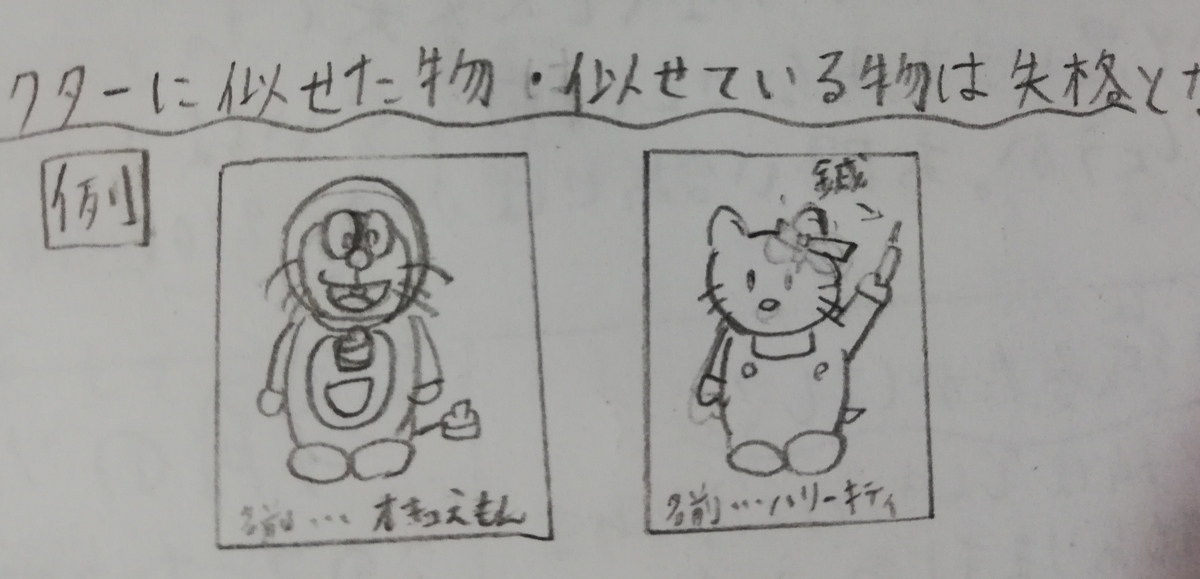 クターに似せた物・似せている物は失格とな
例
鍼
名前…オキュえもん
名前…ハリーキティ